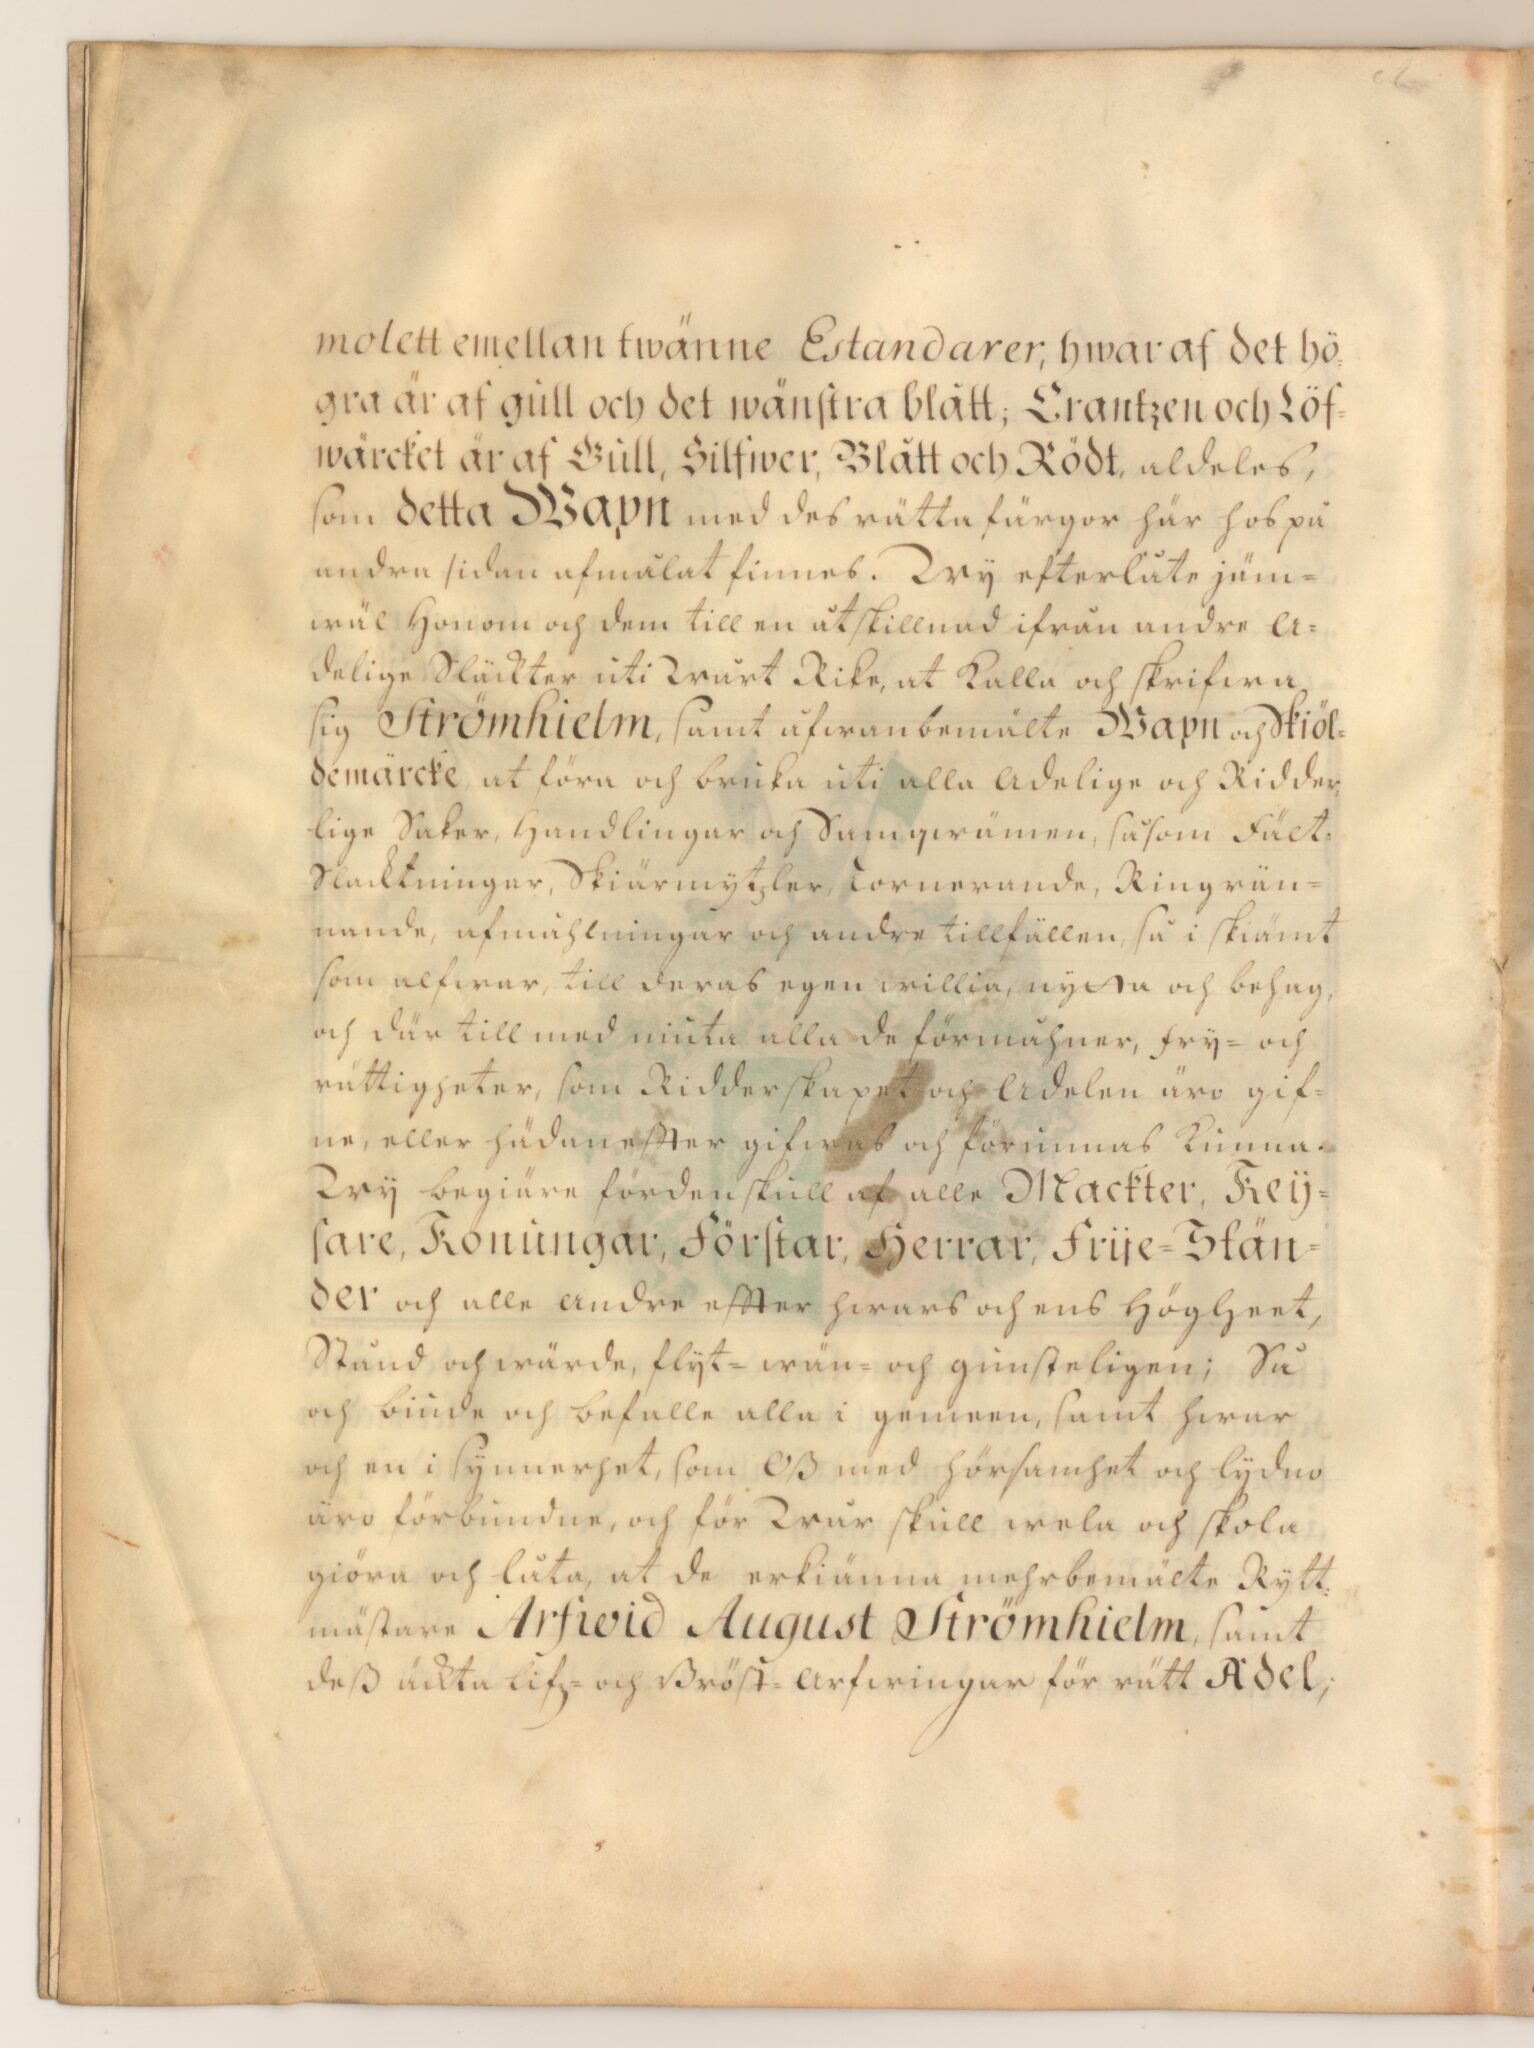 molett emellan twänne Estandarer, hwar af det hö-
gra är af gull och det wänstra blått; Crantzen och Löf-
wärcket är af Gull, Silfwer, Blått och Rödt, aldeles,
som detta Wapn med des rätta färgor här hos på
andra sidan afmålat finnes. Wy efterlåte jäm-
wäl Honom och dem till en åtskillnad ifrån andre A-
delige Släckter uti Wårt Rike, at Kalla och skrifwa
sig Strömhielm, samt åfwanbemälte Wapn och Skiöl-
demärcke, at föra och bruka uti alla Adelige och Ridder-
lige Saker, Handlingar och Samqwämen, såsom Fält-
Slacktningar, Skiärmytzler, Tornerande, Ringrän-
nande, afmåhlningar och andre tillfällen, så i skiämt
som alfwar, till deras egen willia, nytta och behag,
och där till med niuta alla de förmåhner, fry- och
rättigheter, som Ridderskapet och Adelen äro gif-
ne, eller hädaneffter gifwas och förunnas Kunna.
Wy begiäre fördenskull af alle Mackter, Keÿ-
sare, Konungar, Förstar, Herrar, Frije-Stän-
der och alle andre effter hwars och ens Högheet,
Stånd och wärde, flyt- wän- och gunsteligen; Så
och biude och befalle alla i gemeen, samt hwar
och en i synnerhet, som Oß med hörsamhet och lydno
äro förbundne, och för Wår skull wela och skola
giöra och låta, at de erkiänna mehrbemälte Rytt-
mästare Arfwid August Strömhielm, samt
deß äckta Lifz- och Bröst-Arfwingar för rätt Adel;